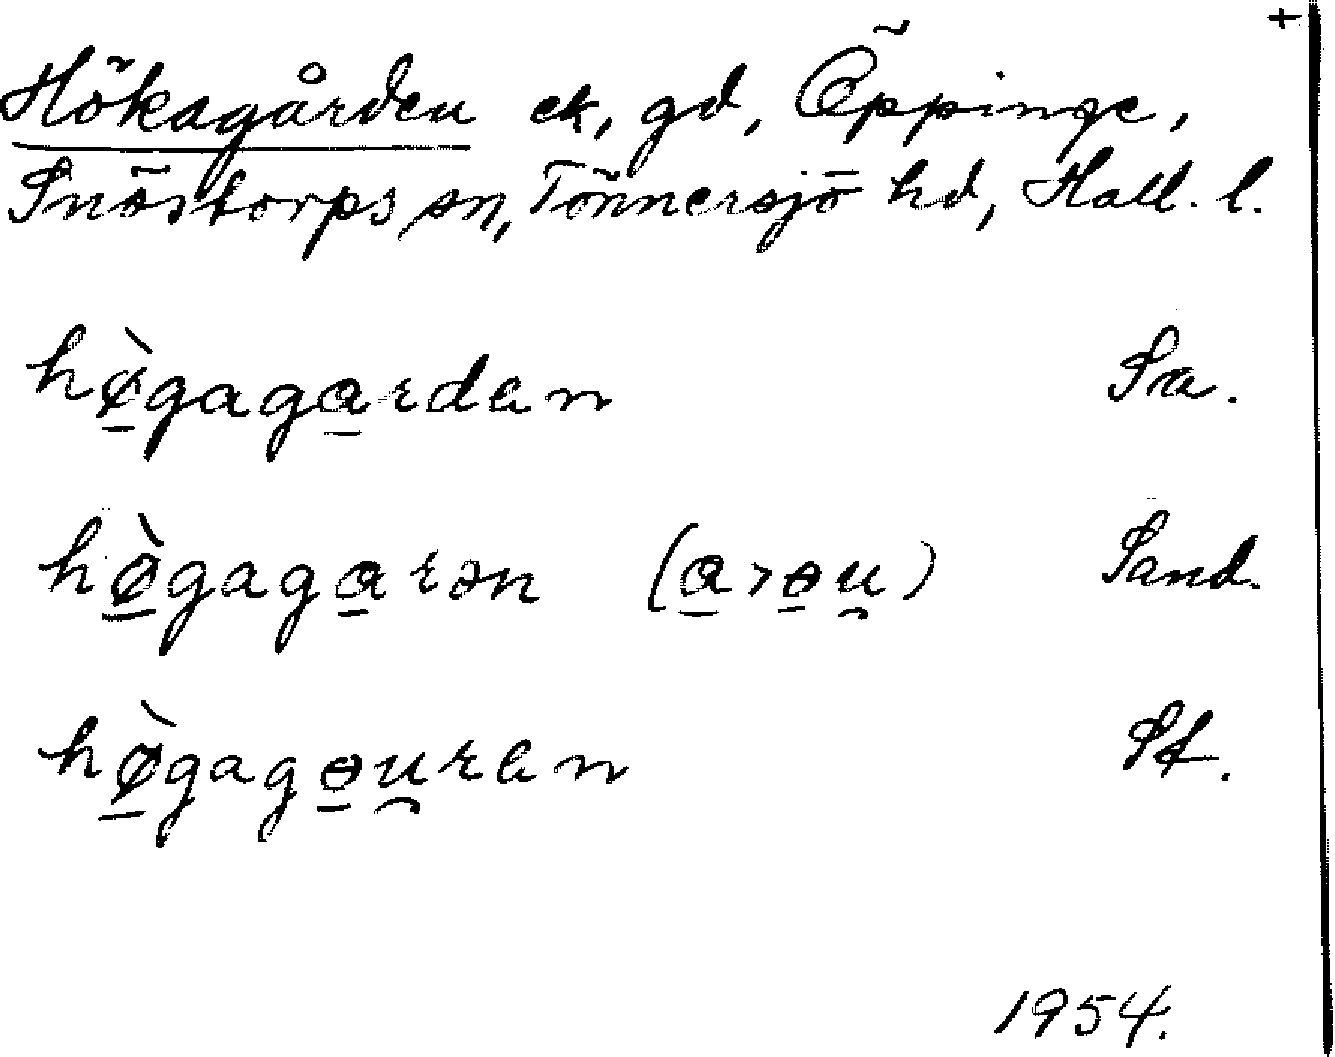 +
Hökagården ek, gd, Öppinge,
Snöstorps sn, Tönnersjö hd, Hall. l.
hø̱̀gaga̱rdan Sa.
hø̱̀gaga̱rən (a̱>ɵ̱u̯) Sand.
hø̱̀gagɵ̱u̯ran Sf.
1954.